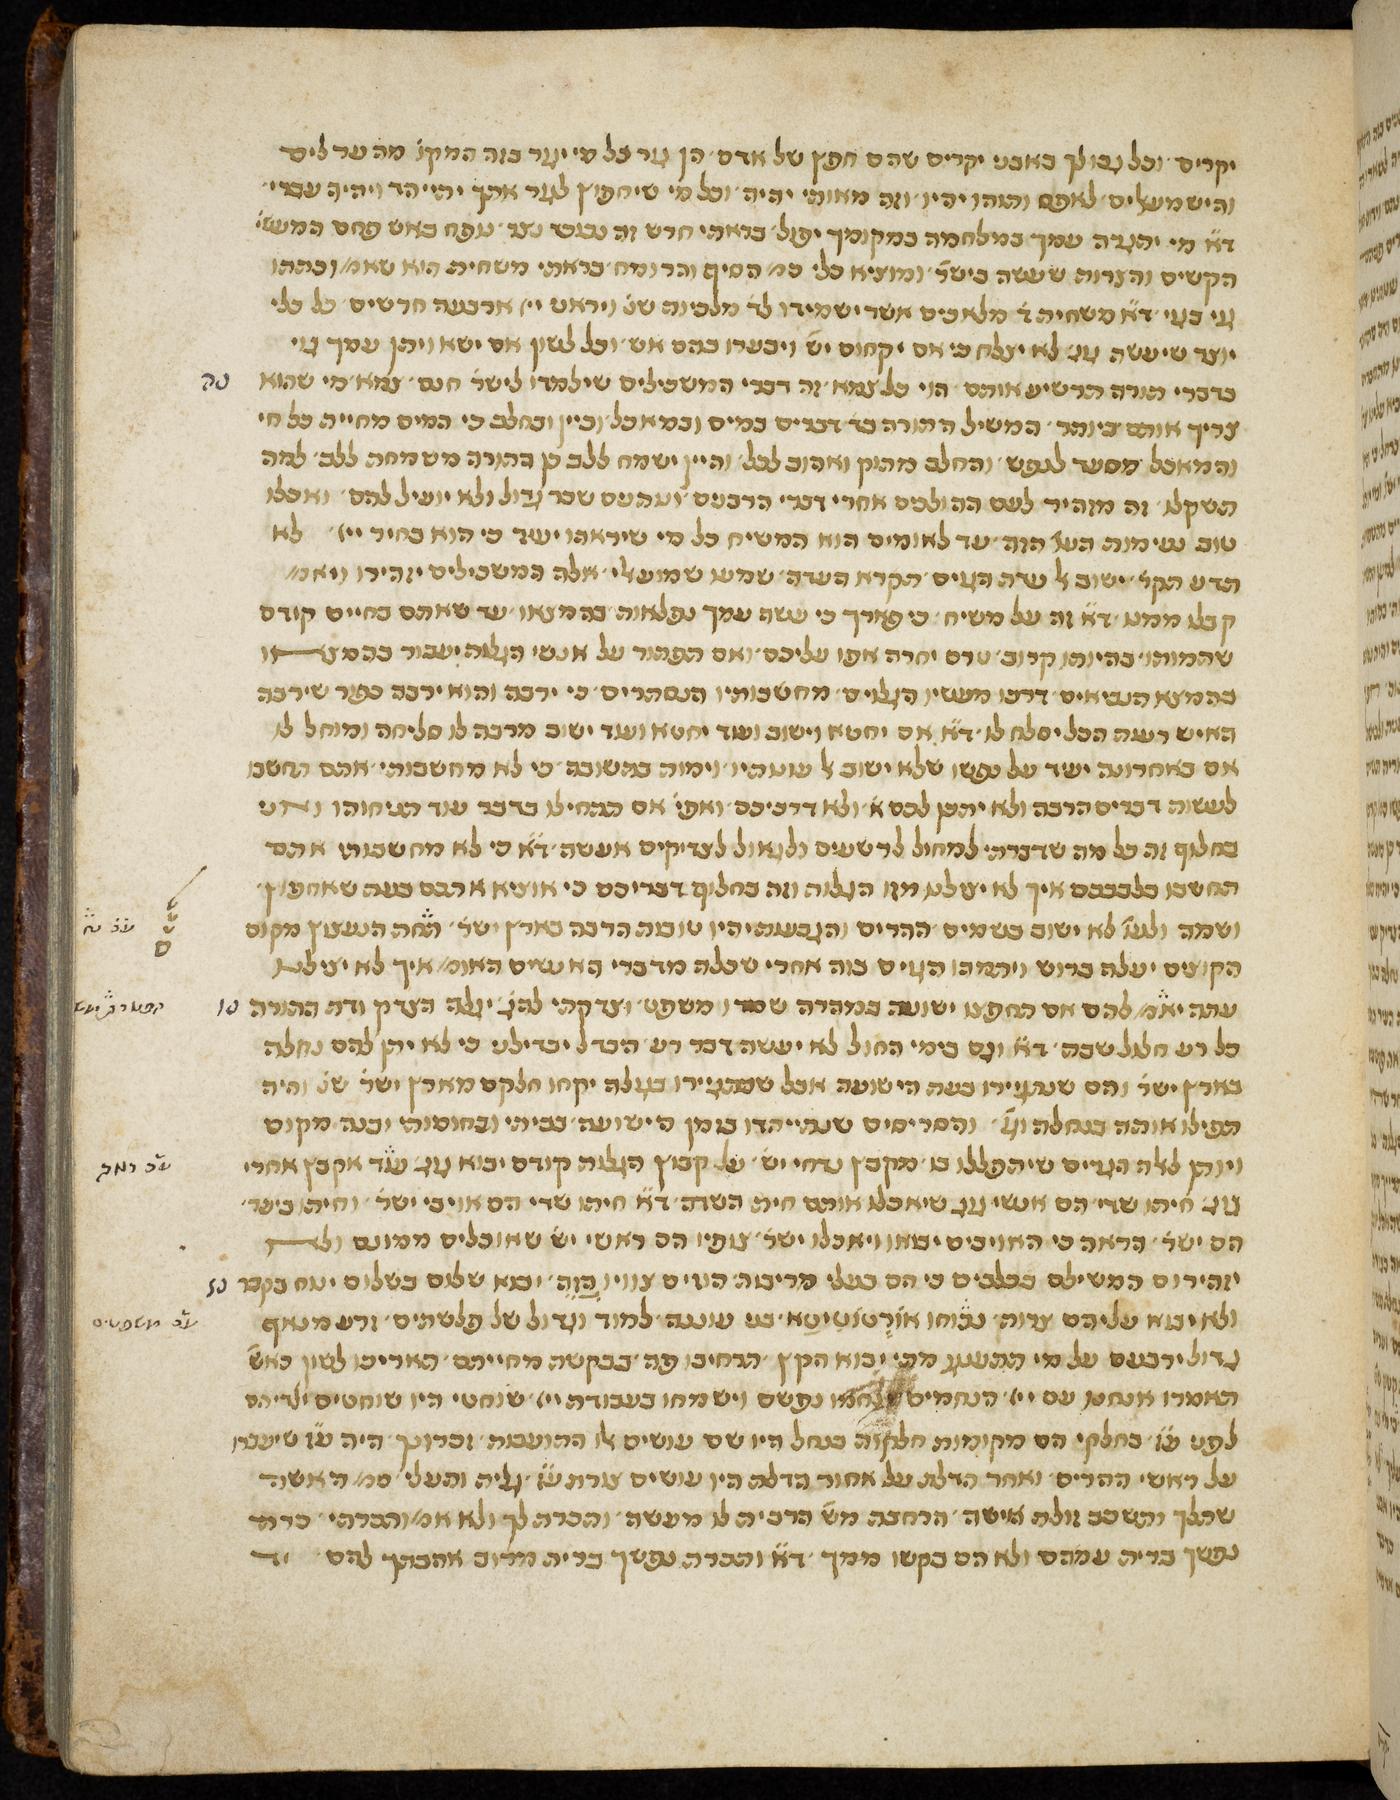 יקרים׳ וכל גבולך באבני יקרים שהם חפץ של אדם׳ הן גר כל מי יגור בזה המקו׳ מה ערלים
והישמעלים׳ לאפס ותהו יהיו׳ וזה מאותי יהיה׳ וכל מי שיחפוץ לגור אתך יתייהד ויהיה עברי׳
ד״א מי יתגרה עמך במלחמה במקומך יפול׳ בראתי חרש זה נופח באש פחם המעש׳
הקשים והצרות שעשה לישר׳ ומוציא כלי כמ׳ הסיף והרומח׳ בראתי משחית הוא שאמ׳ וכתתו
גוי בגוי׳ ד״א משחית ד׳ מלאכים אשר ישמידו לד׳ מלכיות שנ׳ ויראני יי׳ ארבעה חרשים׳ כל כלי
יוצר שיעשה גוג לא יצלח כי אם יקחום יש׳ ויבערו בהם אש׳ וכל לשון אם ישא ויתן עמך גוי
בדברי תורה תרשיע אותם׳ הוי כל צמא׳ זה דברי המשכילים שילמדו לישר׳ חנם׳ צמא׳ מי שהוא
נה
צריך אותם ביותר׳ המשיל התורה בד׳ דברים במים ובמאכל וביין ובחלב כי המים מחייה כל חי
והמאכל מסעד לנפש׳ והחלב מתוק ואהוב לכל׳ והיין ישמח ללב כן התורה משמחת ללב׳ למה
תשקלו׳ זה מזהיר לעם ההולכים אחרי דברי הרבנים׳ שכר גדול ולא יועיל להם׳ ואכלו
טוב נעימות העו׳ הזה׳ עד לאומים הוא המשיח כל מי שיראהו יעיד כי הוא בחיר יי׳׳ לא
תדע תקר׳ ישוב ל עדת הגוים׳ תקרא העדה׳ שמעו שמוע אלי׳ אלה המשכילים יזהירו ויאמ׳
קבלו ממנו׳ ד״א זה על משיח׳ כי פארך כי עשה עמך נפלאות׳ בהמצאו׳ עד שאתם בחיים קודם
שתמותו׳ בהיותו קרוב׳ טרם יחרה אפו עליכם׳ ואם תפתור על אנשי הגלות יעבור בהמצאו
בהמצא הנביאים׳ דרכו מעשיו הגלוים׳ מחשבותיו הנסתרים׳ כי ירבה והוא ירבה כפור שירבה
האיש רעות הכל יסלח לו׳ ד״א אם יחטא וישוב ועוד יחטא ועוד ישוב מרבה לו סליחה ומוחל לו
אם באחרונה יעיד על נפשו שלא ישוב ל עונותיו׳ וימות בתשובה׳ כי לא מחשבותי׳ אתם תחשבו
לעשות דברים הרבה ולא יתכן לכם א׳ ולא דרכיכם׳ ואפי׳ אם תתחילו בדבר עוד תניחוהו
בחלוף זה כל מה שדברתי למחול לרשעים ולגאול לצדיקים אעשה׳ ד״א כי לא מחשבותי אתם
תחשבו בלבבכם איך לא יצילנו מזו הגלות וזה בחלוף דבריכם כי אוציא אתכם בעת שאחפוץ׳
ושמה ולעו׳ לא ישוב בשמים׳ ההרים והגבעות יהיו טובות הרבה בארץ ישר׳ תחת הנעצוץ מקום
הקוצים יעלה ברוש ויתמהו הגוים בזה אחרי שכלה מדברי האנשים האומ׳ איך לא יצילנו
עתה יאמ׳ להם אם תחפצו ישועה במהרה שמרו משפט׳ וצדקתי להג׳ יגלה הצדק ודת התורה
נו
כל רע חלול שבת׳ ד״א וגם בימי החול לא יעשה דבר רע׳ הבדל יבדילני כי לא יתן להם נחלה
בארץ ישר׳ והם שנתגיירו בעת הישועה אבל שמתגיירו בגולה יקחו חלקם מארץ ישר׳ שנ׳ והיה
תפילו אותה בנחלה וג׳׳ והסריסים שנתייהדו בזמן הישועה׳ בביתי ובחומותי ובנה מקום
ויותן לאלה הגוים שיתפללו בו׳ מקבץ נדחי יש׳ על קבוץ הגלות קודם יבוא גוג׳ עוד אקבץ אחרי
גוג׳ חיתו שדי׳ הם אנשי גוג שיאכלו אותם חית השדה׳ ד״א חיתו שדי הם אויבי ישר׳ וחיתו ביער׳
הם ישר׳ הראה כי האויבים יבואו ויאכלו ישר׳ צופיו הם ראשי יש׳ שאוכלים ממונם ולא
יזהירום המשילם בכלבים כי הם בעלי מריבות׳ הגוים צוויו בזה׳ יבוא שלום בשלום ינוח בקבר
נז
ולא יבוא עליהם צרות׳ נכוחו אורטוטיטא׳ בני עוננה׳ למוד וגדול של פלשתים׳ זרע מנאף
גדול ירבעם׳ על מי תתענג מתי יבוא הקץ׳ תרחיבו פה׳ בבקשה מחייתם׳ תאריכו לשון כאש׳
תאמרו אנחנו עם יי׳׳ הנחמים נפשם וישמחו בעבודת יי׳׳ שוחטי היו שוחטים ילדיהם
לפני ע״ז׳ בחלקי הם מקומות חלקות בנחל היו שם עושים אלו התועבות׳ זכרונך׳ היה ע״ז שיעבדו
על ראשי ההרים׳ ואחר הדלת על אחור הדלת היו עושים צורת ע״ז׳ גלית ותעלי׳ כמ׳ האשה
שתלך ותשכב זולת אישה׳ הרחבת מש׳ הרבית לו מעשה׳ ותכרת לך ולא אמ׳ ותכרתי׳ כרת
נפשך ברית עמהם ולא הם בקשו ממך׳ ד״א ותכרת נפשך ברית מרוב אהבתך להם׳ יד